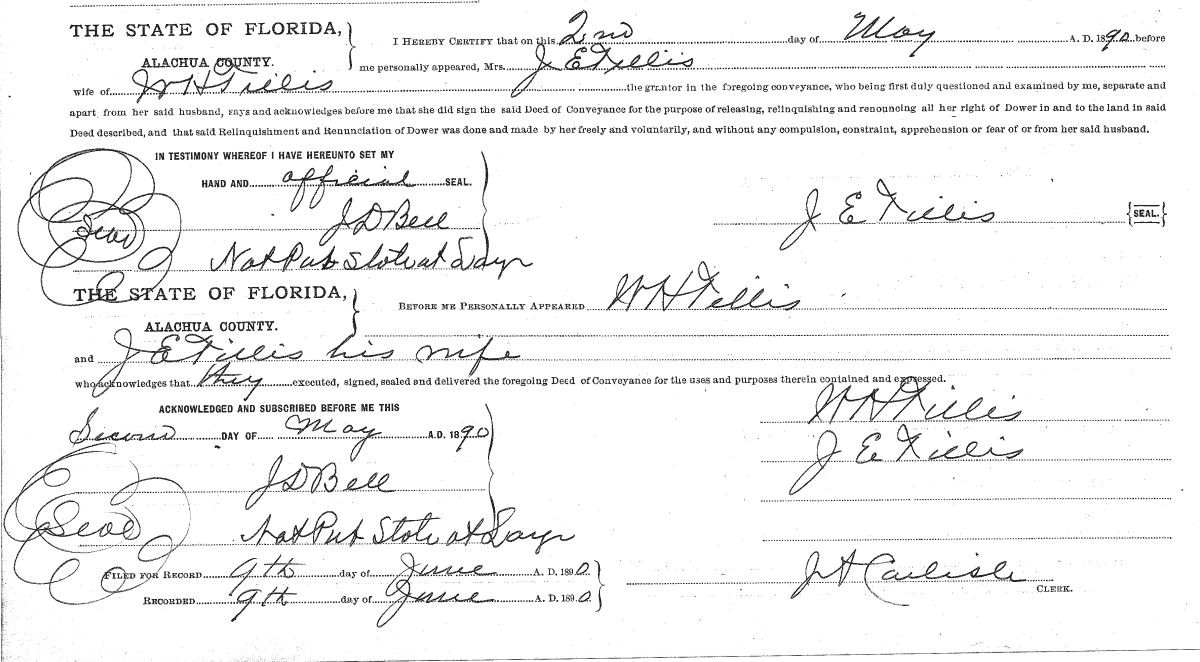 THE STATE OF FLORIDA,
ALACHUA COUNTY.
I HEREBY CERTIFY that on this 2nd day of May A. D. 1890 before
me personally appeared, Mrs. J E Tillis
wife of W H Tillis the grantor in the foregoing conveyance, who being first duly questioned and examined by me, separate and
apart from her said husband, says and acknowledges before me that she did sign the said Deed of Conveyance for the purpose of releasing, relinquishing and renouncing all her right of Dower in and to the land in said
Deed described, and that said Relinquishment and Renunciation of Dower was done and made by her freely and voluntarily, and without any compulsion, constraint, apprehension or fear of or from her said husband.
IN TESTIMONY WHEREOF I HAVE HEREUNTO SET MY
HAND AND official SEAL.
J E Tillis {SEAL.}
Seal J D Bell
Not Pub State at Large
THE STATE OF FLORIDA,
ALACHUA COUNTY.
BEFORE ME PERSONALLY APPEARED W H Tillis
and J E Tillis his wife
who acknowledges that they executed, signed, sealed and delivered the foregoing Deed of Conveyance for the uses and purposes therein contained and expressed.
ACKNOWLEDGED AND SUBSCRIBED BEFORE ME THIS
W H Tillis
Second DAY OF May A.D. 1890
J E Tillis
J D Bell
Seal Not Pub State at Large
FILED FOR RECORD 9th day of June A. D. 1890.
J A Carlisle
CLERK.
RECORDED 9th day of June A. D. 1890.